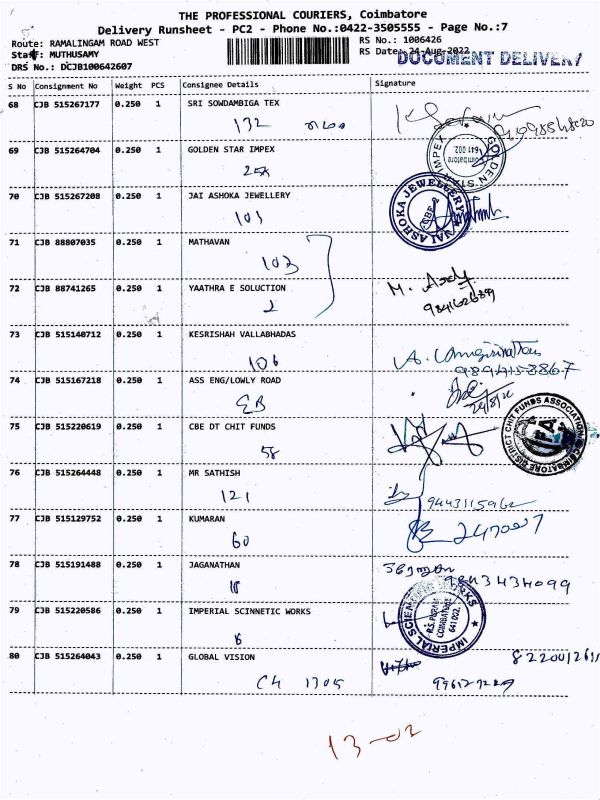 THE PROFESSIONAL COURIERS, Coimbatore
Delivery Runsheet - PC2 - Phone No.:0422-3505555 - Page No.:7
Route: RAMALINGAM ROAD WEST
RS No.: 1006426
Staff: MUTHUSAMY
RS Date: 24-Aug-2022
DOCUMENT DELIVERY
DRS No.: DCJB100642607
S No Consignment No Weight PCS Consignee Details Signature
68 CJB 515267177 0.250 1 SRI SOWDAMBIGA TEX
132
69 CJB 515264704 0.250 1 GOLDEN STAR IMPEX
GOLDEN STAR IMPEX Coimbatore 641 002.
70 CJB 515267208 0.250 1 JAI ASHOKA JEWELLERY
101
JAI ASHOKA JEWELLERY CBE-2
71 CJB 88807035 0.250 1 MATHAVAN
103
72 CJB 88741265 0.250 1 YAATHRA E SOLUCTION
2
73 CJB 515140712 0.250 1 KESRISHAH VALLABHADAS
106
9894158867
74 CJB 515167218 0.250 1 ASS ENG/LOWLY ROAD
EB
24/8/22
75 CJB 515220619 0.250 1 CBE DT CHIT FUNDS
58
COIMBATORE DISTRICT CHIT FUNDS ASSOCIATION
76 CJB 515264448 0.250 1 MR SATHISH
121
77 CJB 515129752 0.250 1 KUMARAN
60
2470027
78 CJB 515191488 0.250 1 JAGANATHAN
9843434099
79 CJB 515220586 0.250 1 IMPERIAL SCINNETIC WORKS
IMPERIAL SCIENTIFIC WORKS R.S. PURAM COIMBATORE 641 002.
80 CJB 515264043 0.250 1 GLOBAL VISION
1305
13-02